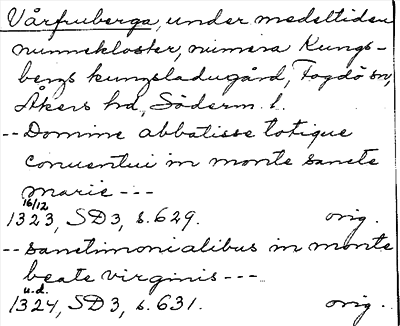 Vårfruberga, under medeltiden
nunnekloster, numera Kungs-
bergs kungsladugård, Fogdö sn,
Åkers hd, Söderm. l.
-- Domine abbatisse totique
conuentui in monte sancte
marie ---
16/12
1323, SD3, s. 629. orig.
-- sanctimonialibus in monte
beate virginis ---
u.d.
1324, SD3, s. 631. orig.